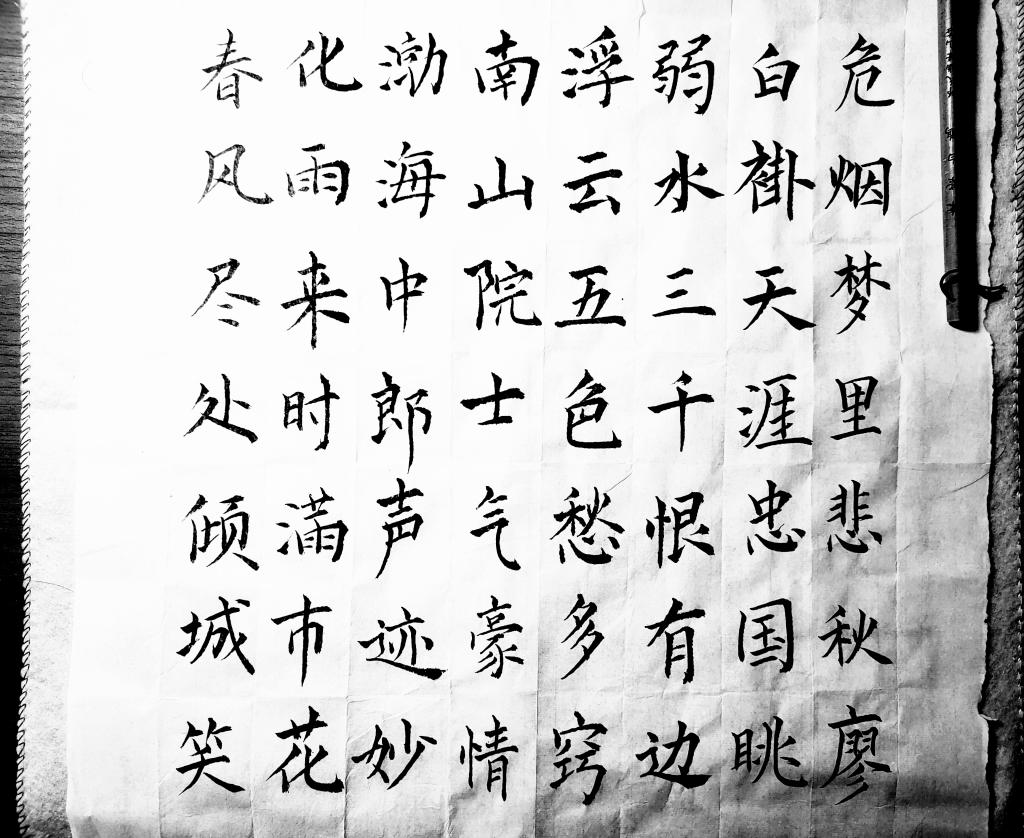 危烟梦里悲秋廖
白褂天涯忠国眺
弱水三千恨有边
浮云五色愁多窍
南山院士气豪情
渤海中郎声迹妙
化雨来时满市花
春风尽处倾城笑